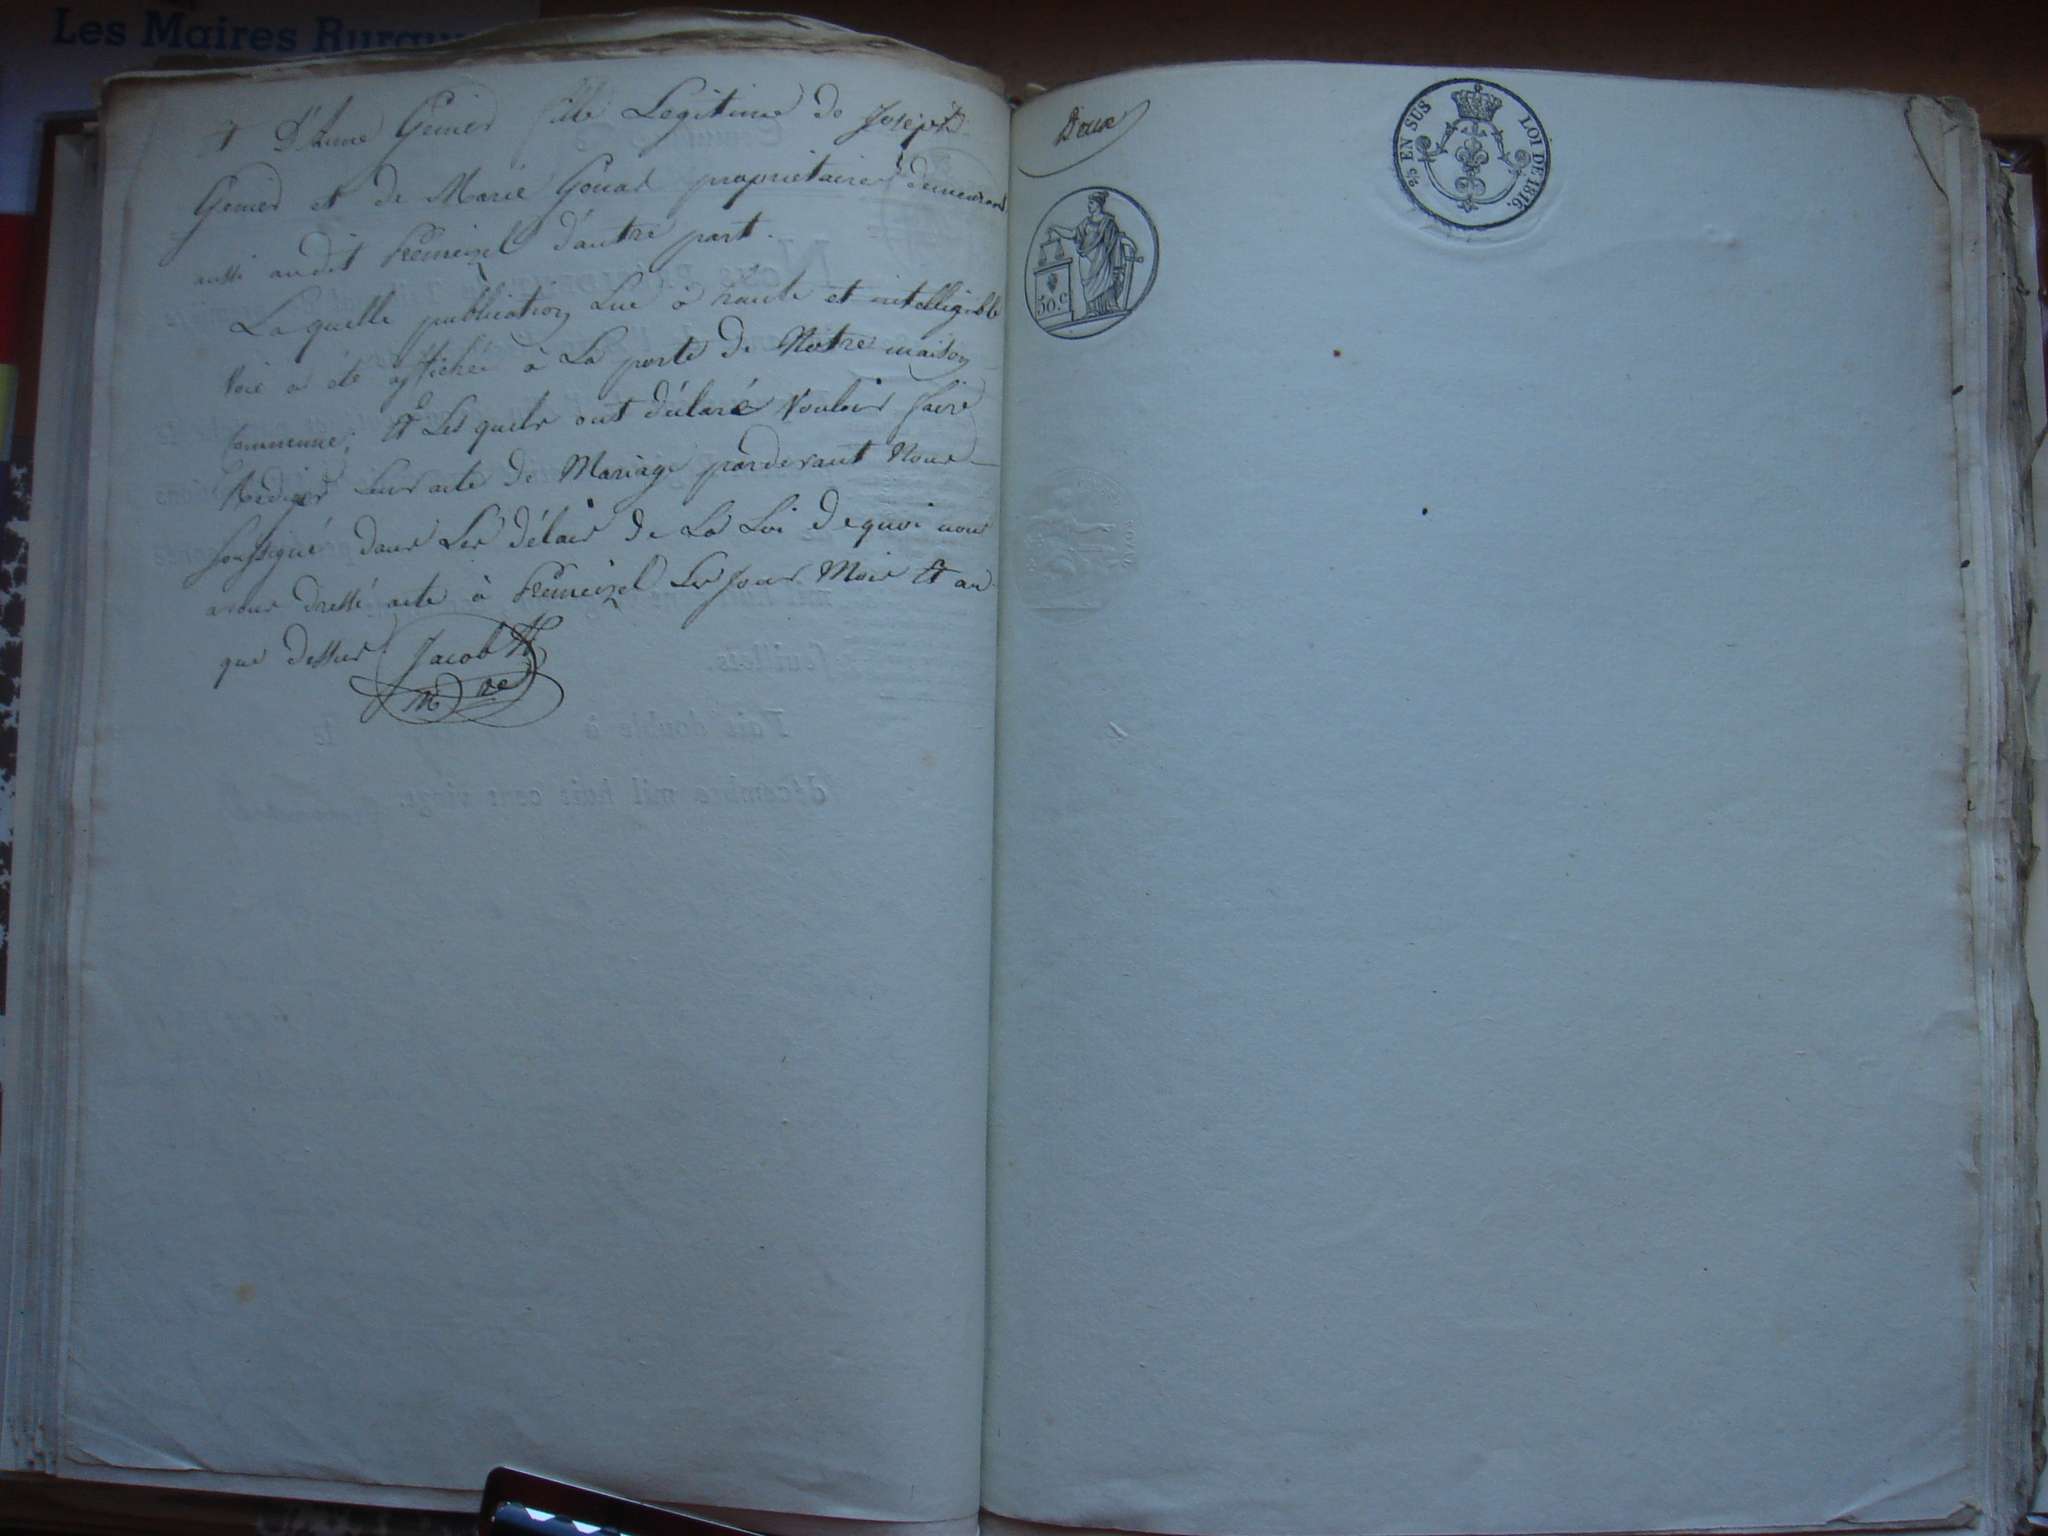 Les Maires Ruraux
Et D'Anne Genied fille Legitime de Joseph
Genied et de Marie Gouat proprietaires demeurant
aussi audit d'autre part.
Laquelle publication Lue à haute et intelligible
voie a été affichée à La porte de Notre maison
Commune; Et Lesquels ont déclaré Vouloir faire
Rediger leur acte de Mariage pardevant Nous
soussigné dans Les délais de La Loi Dequoi nous
avons dressé acte à Les Jour Mois Et an
que dessus. Jacob
Doux
2/5 EN SUS LOI DE 1816.
50.c